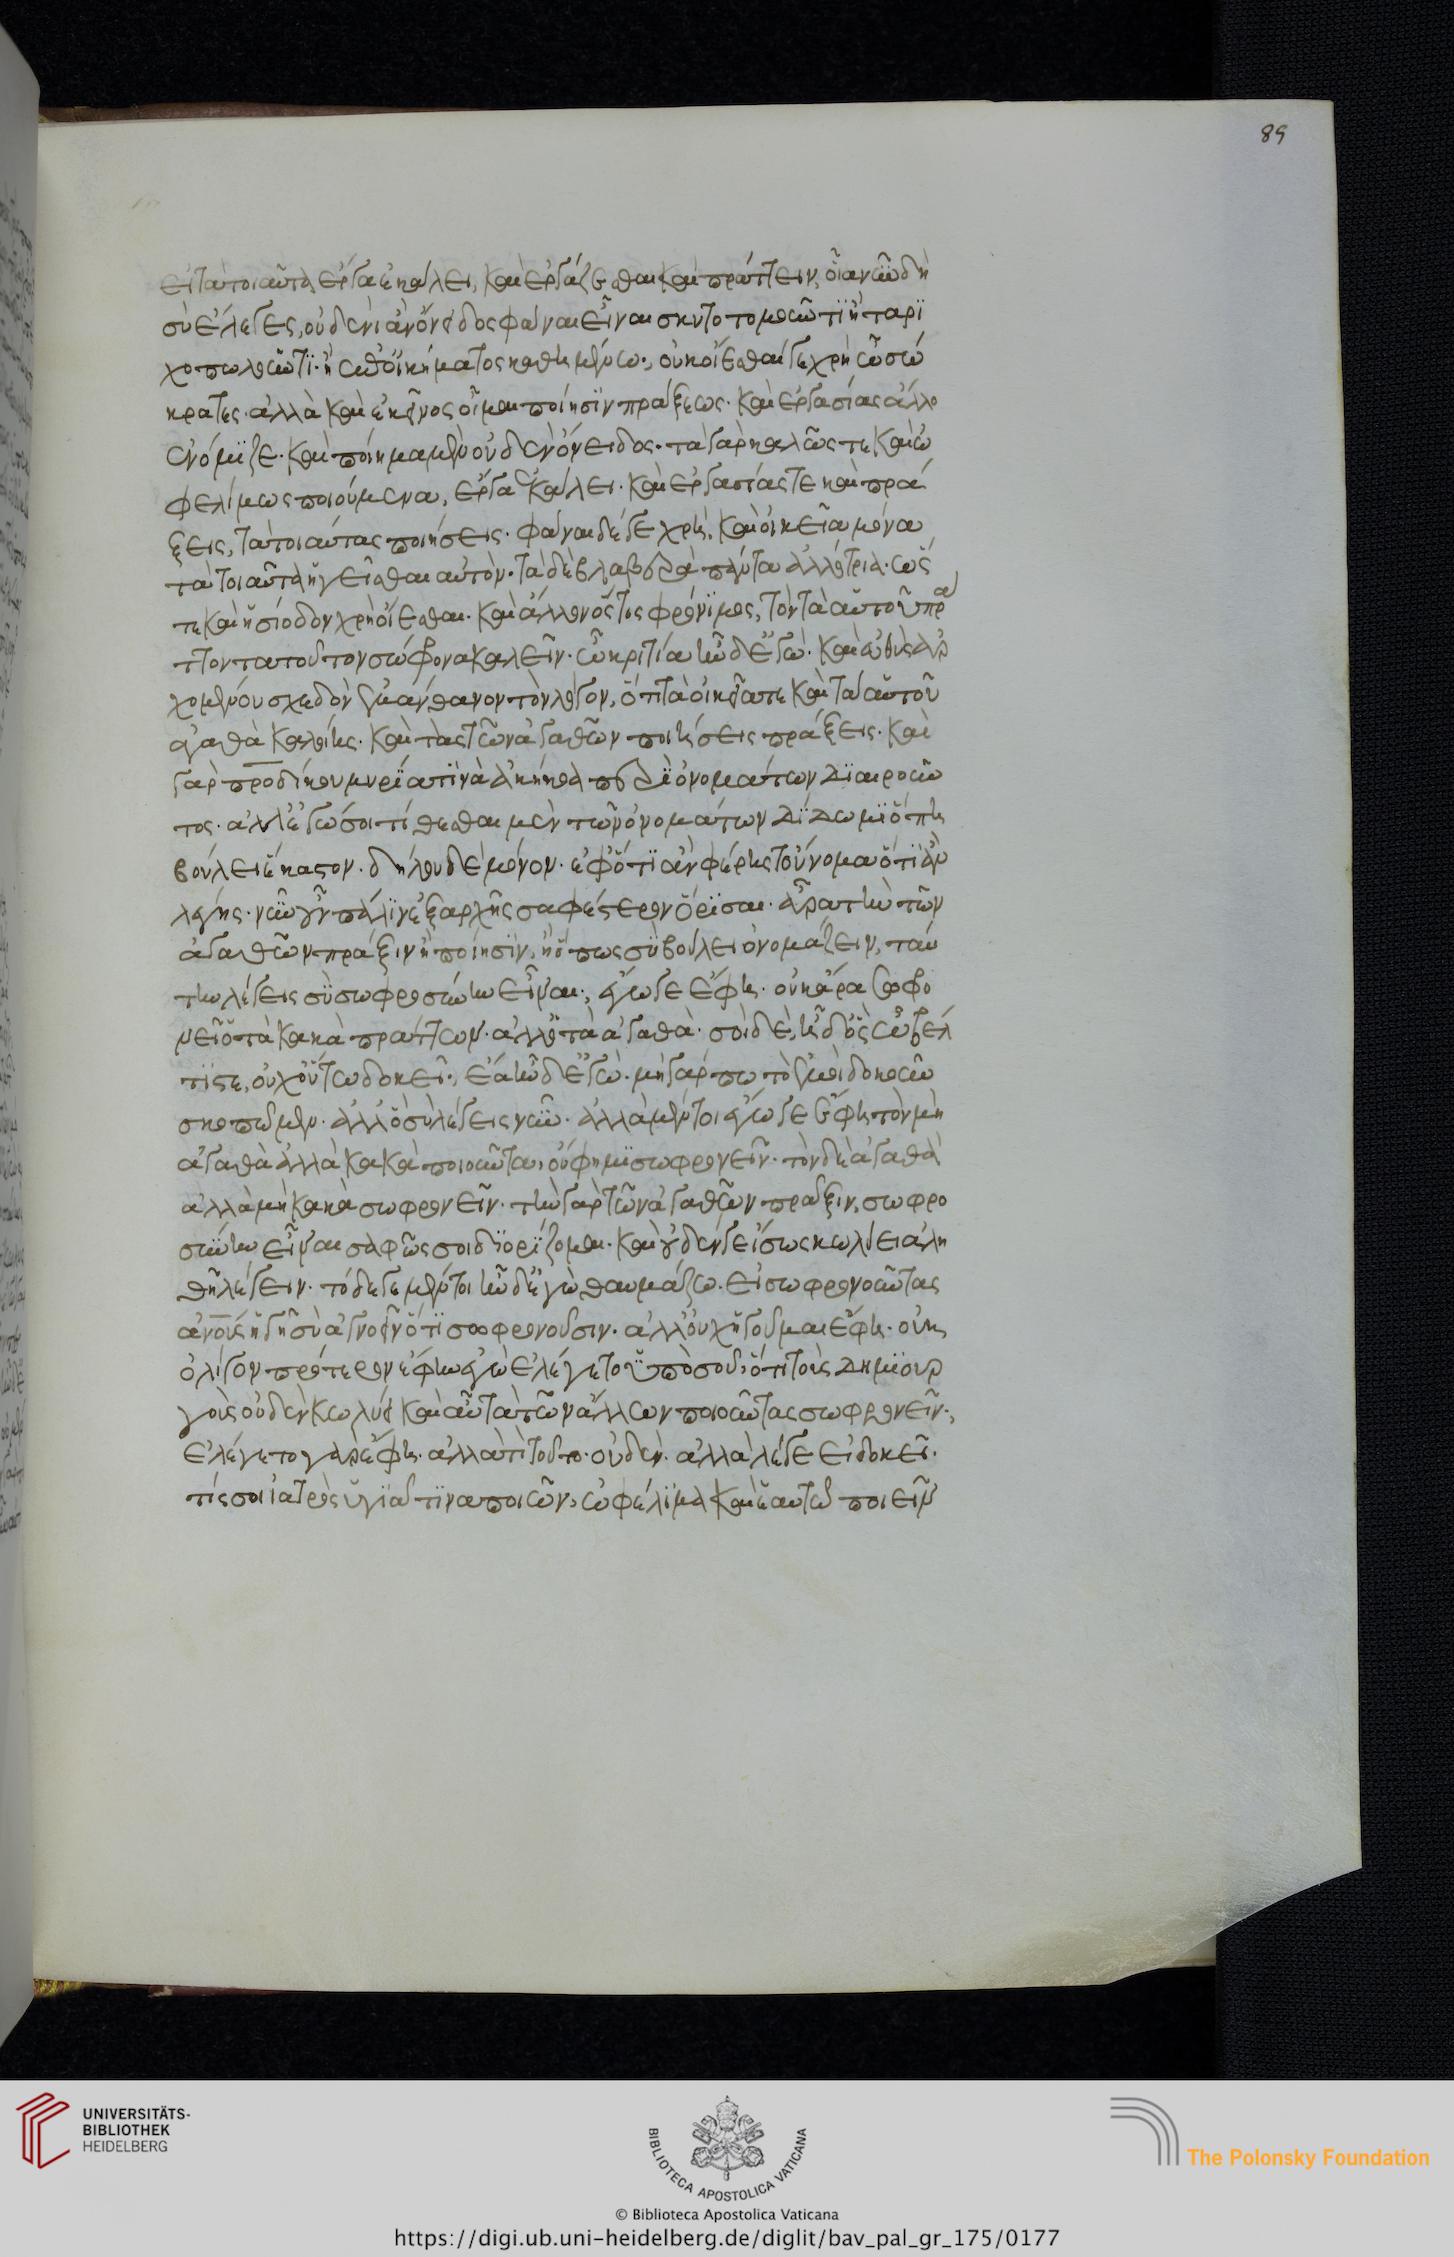 εἰ τὰ τοιαῦτα ἔργα ἐκάλει, καὶ ἐργάζεσθαι καὶ πράττειν, οἷα νῦν δὴ
σὺ ἔλεγες, οὐδενὶ ἂν ὄνειδος φάναι εἶναι σκυτοτομοῦντι ἢ ταρι
χοπωλοῦντι· ἢ ἐπ' οἰκήματος καθημένω·, οὐκ οἴεσθαί γε χρὴ ὦ σώ
κρατες· ἀλλὰ καὶ ἐκεῖνος οἶμαι ποίησιν πράξεως· καὶ ἐργασίας ἄλλο
ἐνόμιζε· καὶ ποίημα μὲν οὐδὲν ὄνειδος· τὰ γὰρ καλῶς τε καὶ ὠ
φελίμως ποιούμενα, ἔργα ἐκάλει· καὶ ἐργασίας τε καὶ πρά
ξεις, τὰ τοιαύτας ποιήσεις· φάναι δέ γε χρὴ, καὶ οἰκεῖα μόνα
τὰ τοιαῦτα ἡγεῖσθαι αὐτόν· τὰ δὲ βλαβερὰ πάντα ἀλλότρια· ὥσ
τε καὶ ἡσίοδον χρὴ οἴεσθαι· καὶ ἄλλον ὅστις φρόνιμος, τὸν τὰ αὑτοῦ πρα
ττοντα τοῦτον σώφρονα καλεῖν· ὦ κριτία ἦν δ' ἐγώ· καὶ εὐθὺς ἀρ
χομένου σχεδὸν ἐμάνθανον τὸν λόγον, ὅτι τὰ οἰκεῖά τε καὶ τὰ αὑτοῦ
ἀγαθὰ καλοίης· καὶ τὰς τῶν ἀγαθῶν ποιήσεις πράξεις· καὶ
γὰρ προδίκου μυρία τινὰ ἀκήκοα περὶ ὀνομάτων διαιροῦν
τος· ἀλλ' ἐγώ σοι τίθεσθαι μὲν τῶν ὀνομάτων δίδωμι ὅπη
βούλει ἕκαστον· δήλου δὲ μόνον· ἐφ' ὅ τι ἂν φέρης τοὔνομα ὅ τι ἂν
λέγης· νῦν οὖν πάλιν ἐξαρχῆς σαφέστερον ὅρισαι· ἆρα τὴν τῶν
ἀγαθῶν πρᾶξιν ἢ ποίησιν, ἢ ὅπως σὺ βούλει ὀνομάζειν, ταύ
την λέγεις σὺ σωφροσύνην εἶναι·, ἔγωγε ἔφη· οὐκ ἄρα σωφρο
νεῖ ὁ τὰ κακὰ πράττων· ἀλλ' ὁ τὰ ἀγαθὰ· σοὶ δὲ, ἦ δ' ὃς ὦ βέλ
τιστε, οὐχ οὕτω δοκεῖ·, ἔα ἦν δ' ἐγώ· μὴ γάρ πω τὸ ἐμοὶ δοκοῦν
σκοπῶμεν· ἀλλ' ὃ σὺ λέγεις νῦν· ἀλλὰ μέντοι ἔγωγε ἔφη τὸν μὴ
ἀγαθὰ ἀλλὰ κακὰ ποιοῦντα, οὔ φημι σωφρονεῖν· τὸν δὲ ἀγαθὰ
ἀλλὰ μὴ κακὰ σωφρονεῖν· τὴν γὰρ τῶν ἀγαθῶν πρᾶξιν, σωφρο
σύνην εἶναι σαφῶς σοι διορίζομαι· καὶ οὐδέν γε ἴσως κωλύει ἀλη
θῆ λέγειν· τόδε γε μέντοι ἦν δ' ἐγὼ θαυμάζω· εἰ σωφρονοῦντας
ἀνούς ἡγῆ σὺ ἀγνοεῖν ὅτι σωφρονοῦσιν· ἀλλ' οὐχ ἡγοῦμαι ἔφη· οὐκ
ὀλίγον πρότερον ἔφην ἐγὼ ἐλέγετο ὑπὸ σοῦ, ὅτι τοὺς δημιουρ
γοὺς οὐδὲν κωλύει καὶ αὖ τὰ τῶν ἄλλων ποιοῦντας σωφρονεῖν·,
ἐλέγετο γὰρ ἔφη· ἀλλὰ τί τοῦτο· οὐδὲν· ἀλλὰ λέγε εἰ δοκεῖ·
τίς σοι ἰατρὸς ὑγιᾶ τινα ποιῶν, ὠφέλιμα καὶ ἑαυτῶ ποιεῖν
89
UNIVERSITÄTS-
BIBLIOTHEK
HEIDELBERG
BIBLIOTECA APOSTOLICA VATICANA
The Polonsky Foundation
© Biblioteca Apostolica Vaticana
https://digi.ub.uni-heidelberg.de/diglit/bav_pal_gr_175/0177